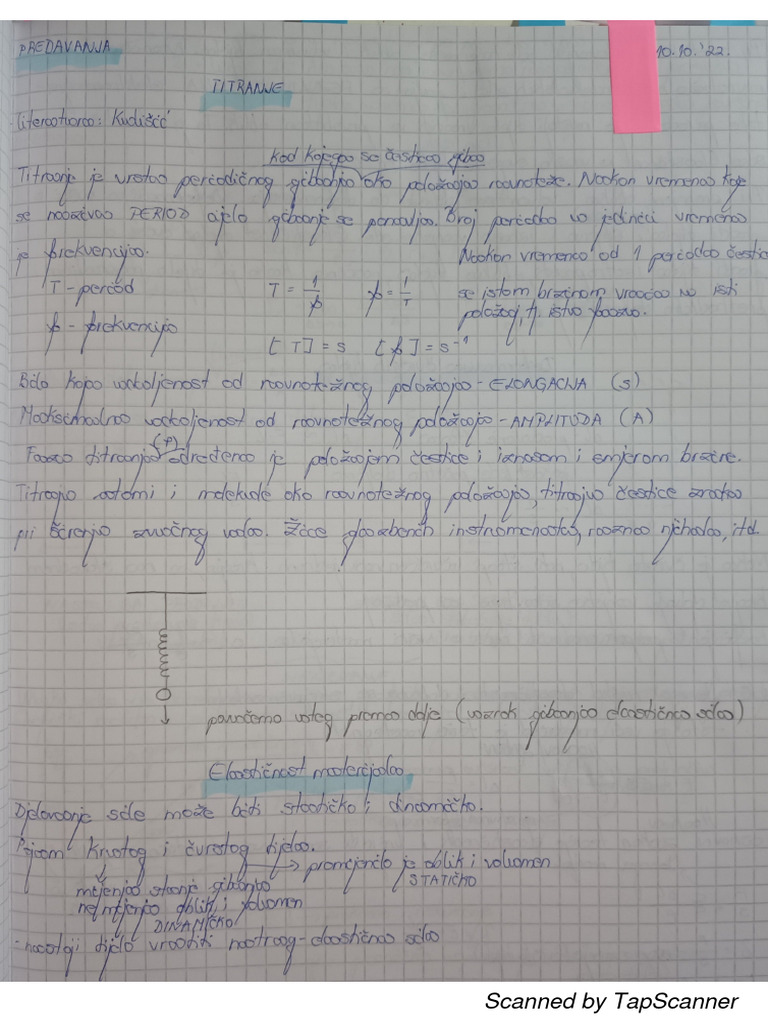 PREDAVANJA
10.10.'22.
TITRANJE
Literatura: Kudišić
kod kojega se čestica giba
Titranje je vrsta periodičnog gibanja oko položaja ravnoteže. Nakon vremena koje
se naziva PERIOD cijelo gibanje se ponavlja. Broj perioda u jedinici vremena
je frekvencija.
Nakon vremena od 1 perioda čestica
T - period
T = 1/f
f = 1/T
se istom brzinom vraća u isti
položaj, tj. istu fazu.
f - frekvencija
[T] = s
[f] = s⁻¹
Bilo koja udaljenost od ravnotežnog položaja - ELONGACIJA (s)
Maksimalna udaljenost od ravnotežnog položaja - AMPLITUDA (A)
(φ)
Faza titranja određena je položajem čestice i iznosom i smjerom brzine.
Titraju atomi i molekule oko ravnotežnog položaja, titraju čestice zraka
pri širenju zvučnog vala. Žice glazbenih instrumenata, razna njihala, itd.
povučemo uteg prema dolje (uzrok gibanja elastična sila)
Elastičnost materijala
Djelovanje sile može biti statičko i dinamičko.
Pojam krutog i čvrstog tijela.
→ promijenilo je oblik i volumen
STATIČKO
mijenja stanje gibanja
ne mijenja oblik i volumen
DINAMIČKO
- nastoji tijelo vratiti natrag - elastična sila
Scanned by TapScanner